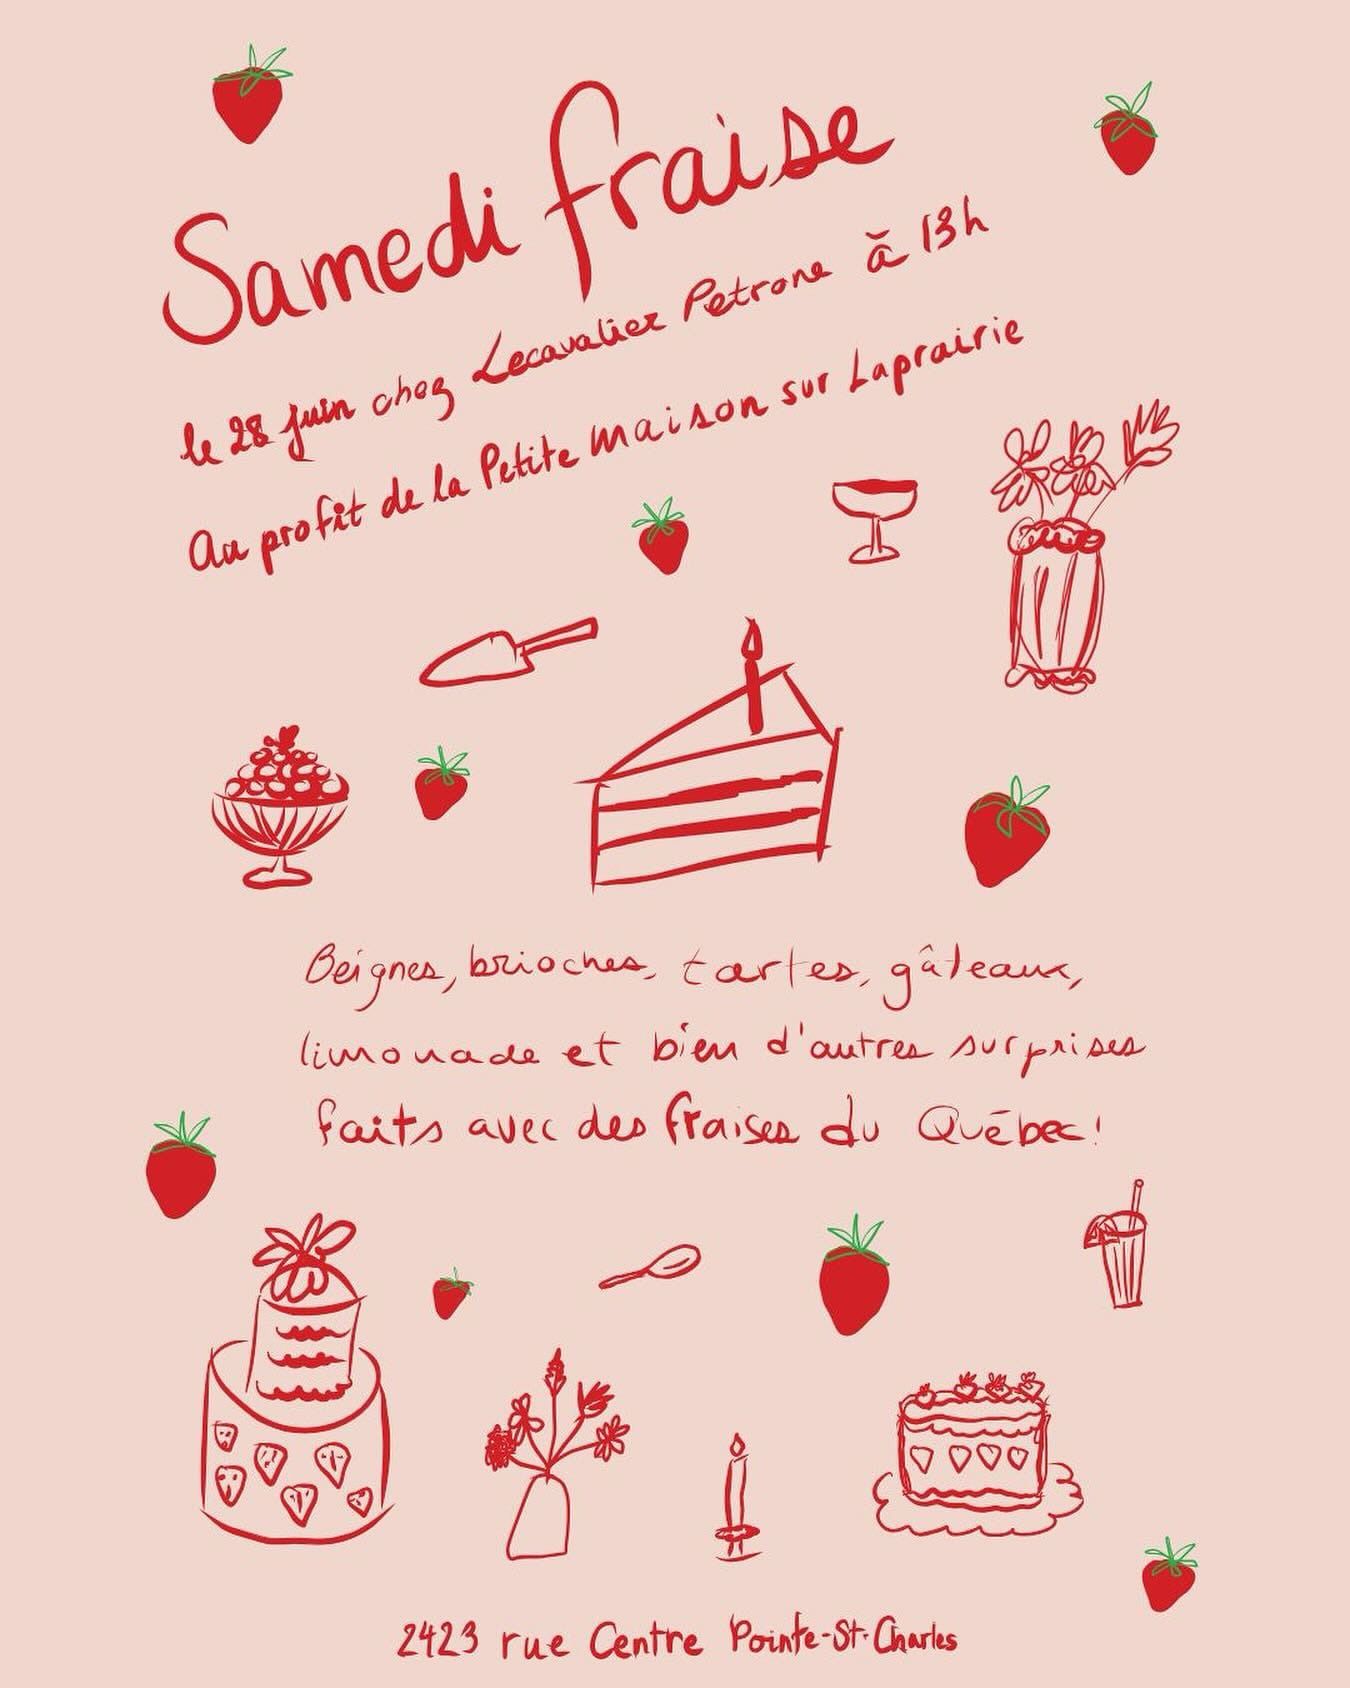 Samedi fraise
le 28 juin chez Lecavalier Petrone à 13h
Au profit de la Petite Maison sur Laprairie
Beignes, brioches, tartes, gâteaux,
limonade et bien d'autres surprises
faits avec des fraises du Québec!
2423 rue Centre Pointe-St-Charles